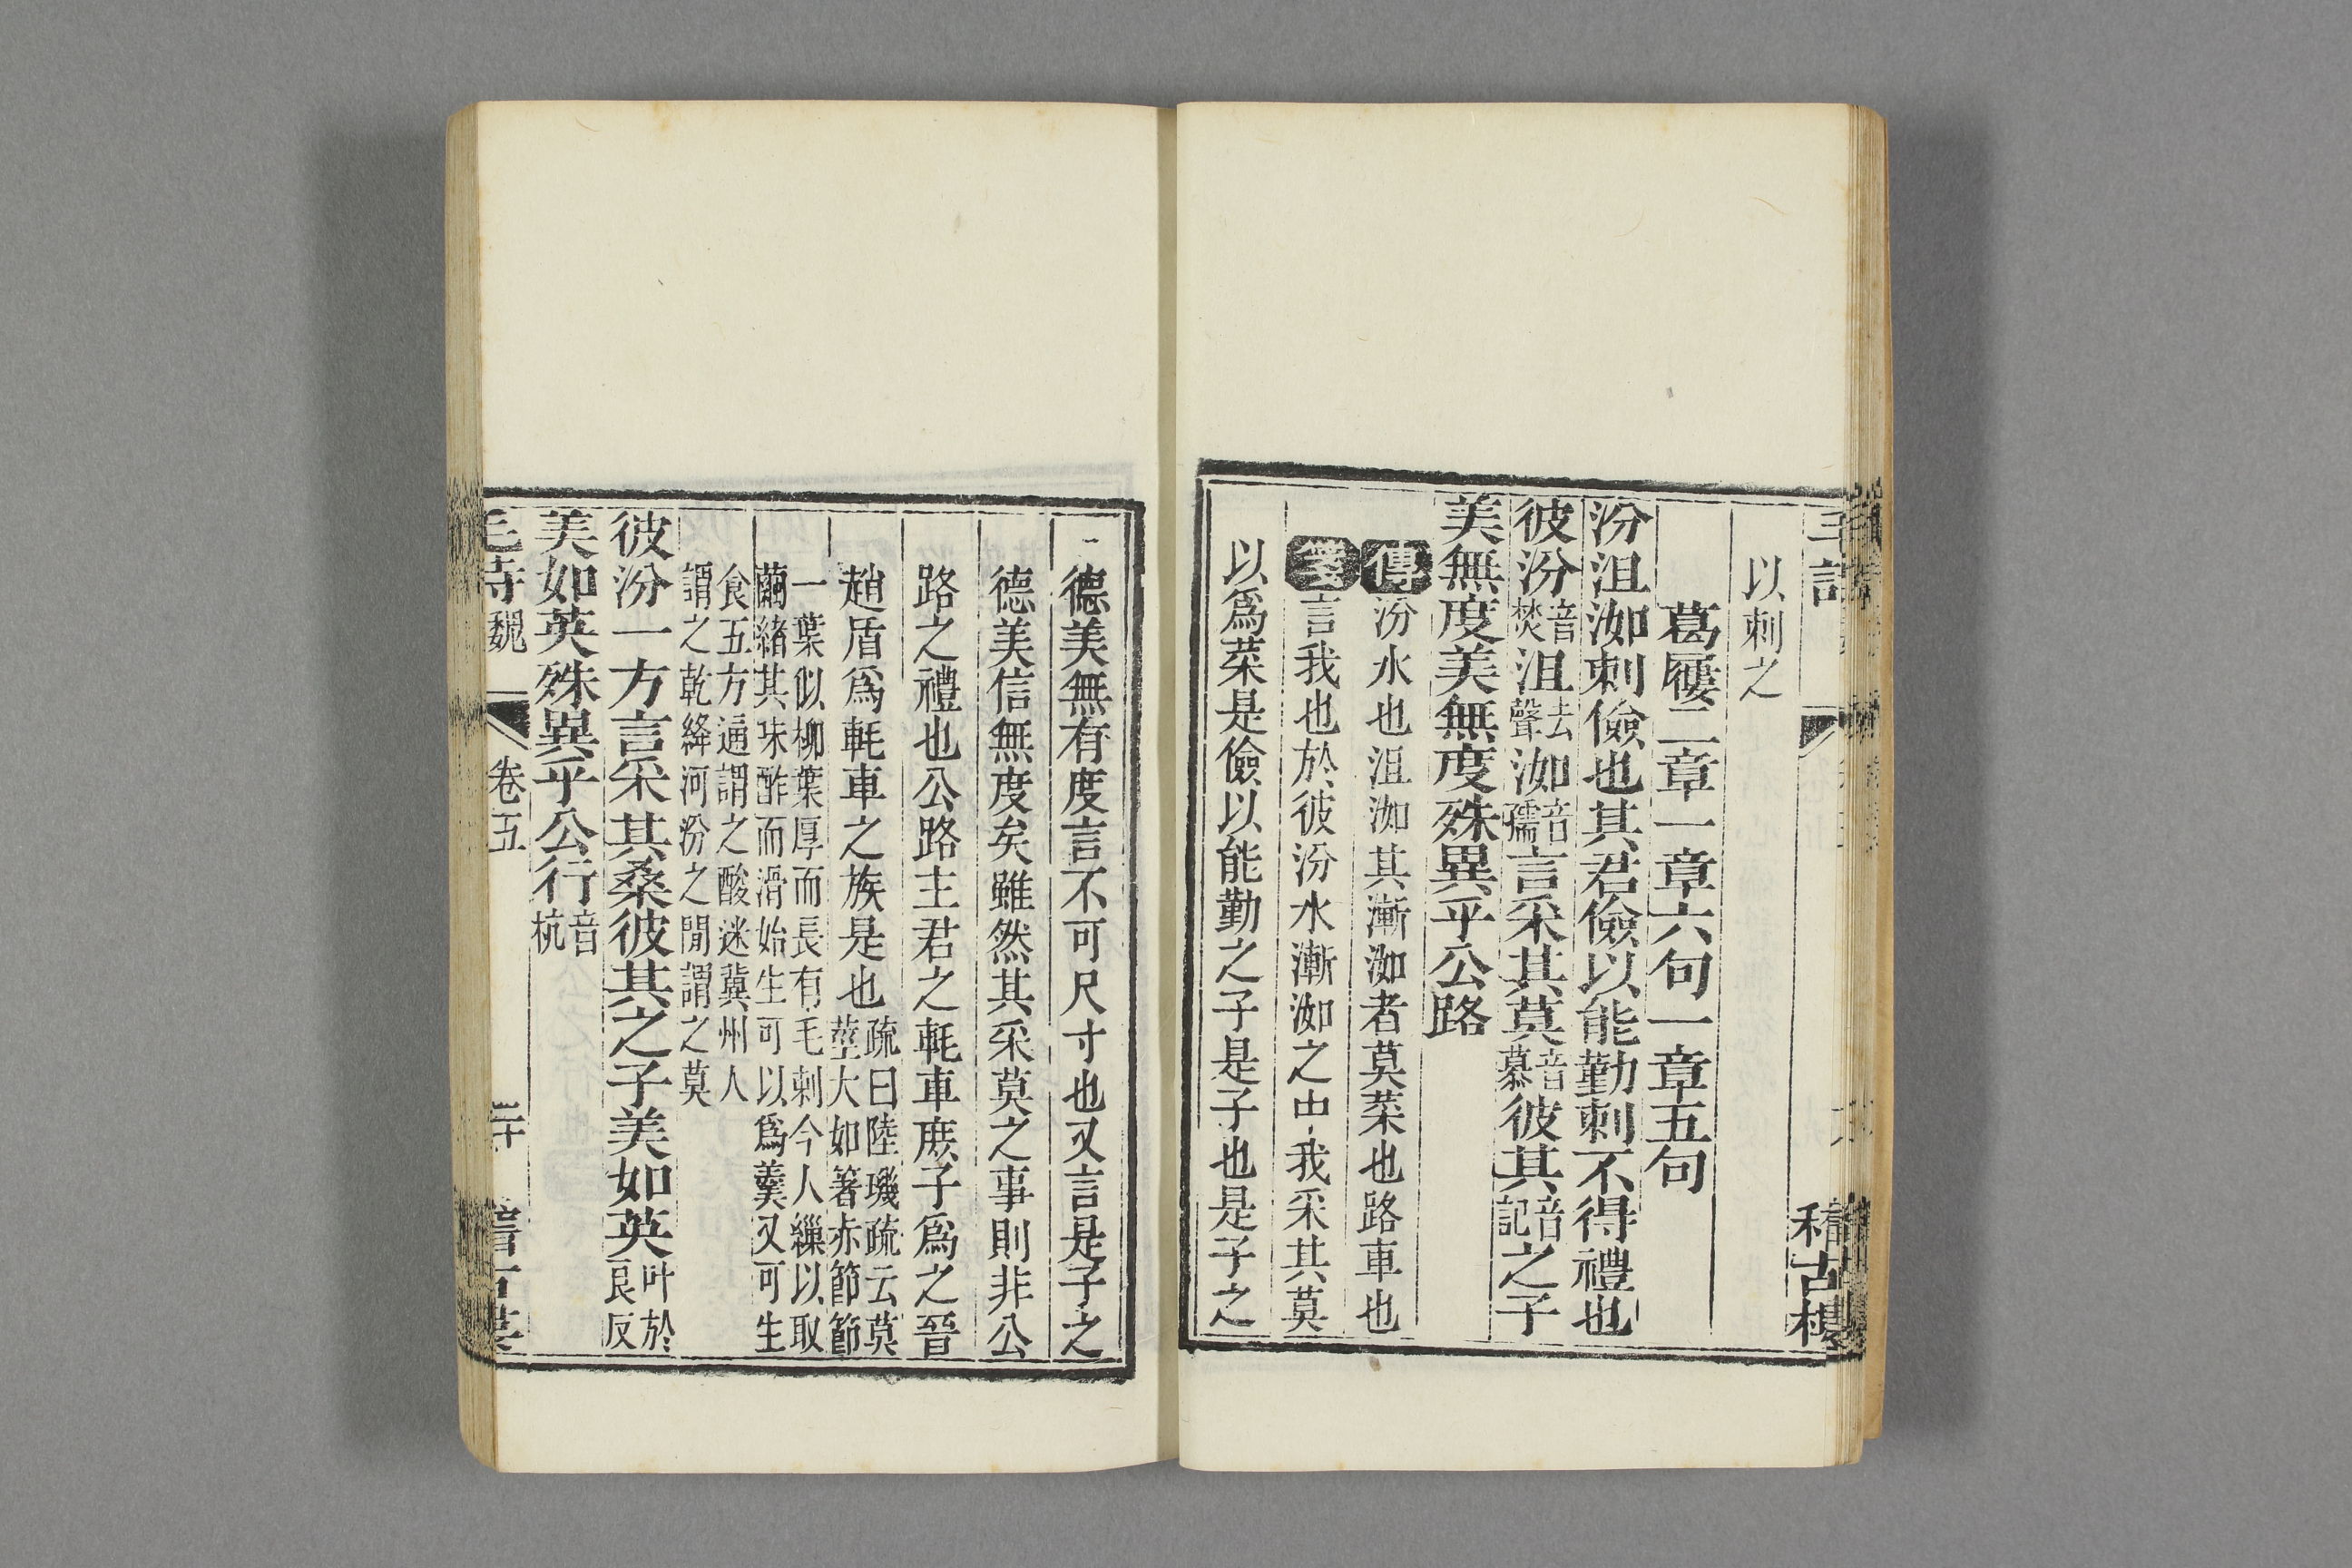 稽古樓
以刺之
葛屨二章一章六句一章五句
汾沮洳刺儉也其君儉以能勤刺不得禮也
彼汾音焚沮去聲洳音孺言采其莫音慕彼其音記之子
美無度美無度殊異乎公路
傳汾水也沮洳其漸洳者莫菜也路車也
箋言我也於彼汾水漸洳之中我采其莫
以爲菜是儉以能勤之子是子也是子之
德美無有度言不可尺寸也又言是子之
德美信無度矣雖然其采莫之事則非公
路之禮也公路主君之軞車庶子爲之晉
趙盾爲軞車之族是也疏曰陸璣疏云莫
莖大如箸赤節節
一葉似柳葉厚而長有毛刺今人繅以取
繭緖其味酢而滑始生可以爲羹又可生
食五方通謂之酸迷冀州人
謂之乾絳河汾之閒謂之莫
彼汾一方言采其桑彼其之子美如英叶於良反
美如英殊異乎公行音杭
毛詩 魏 卷五 二十 稽古樓